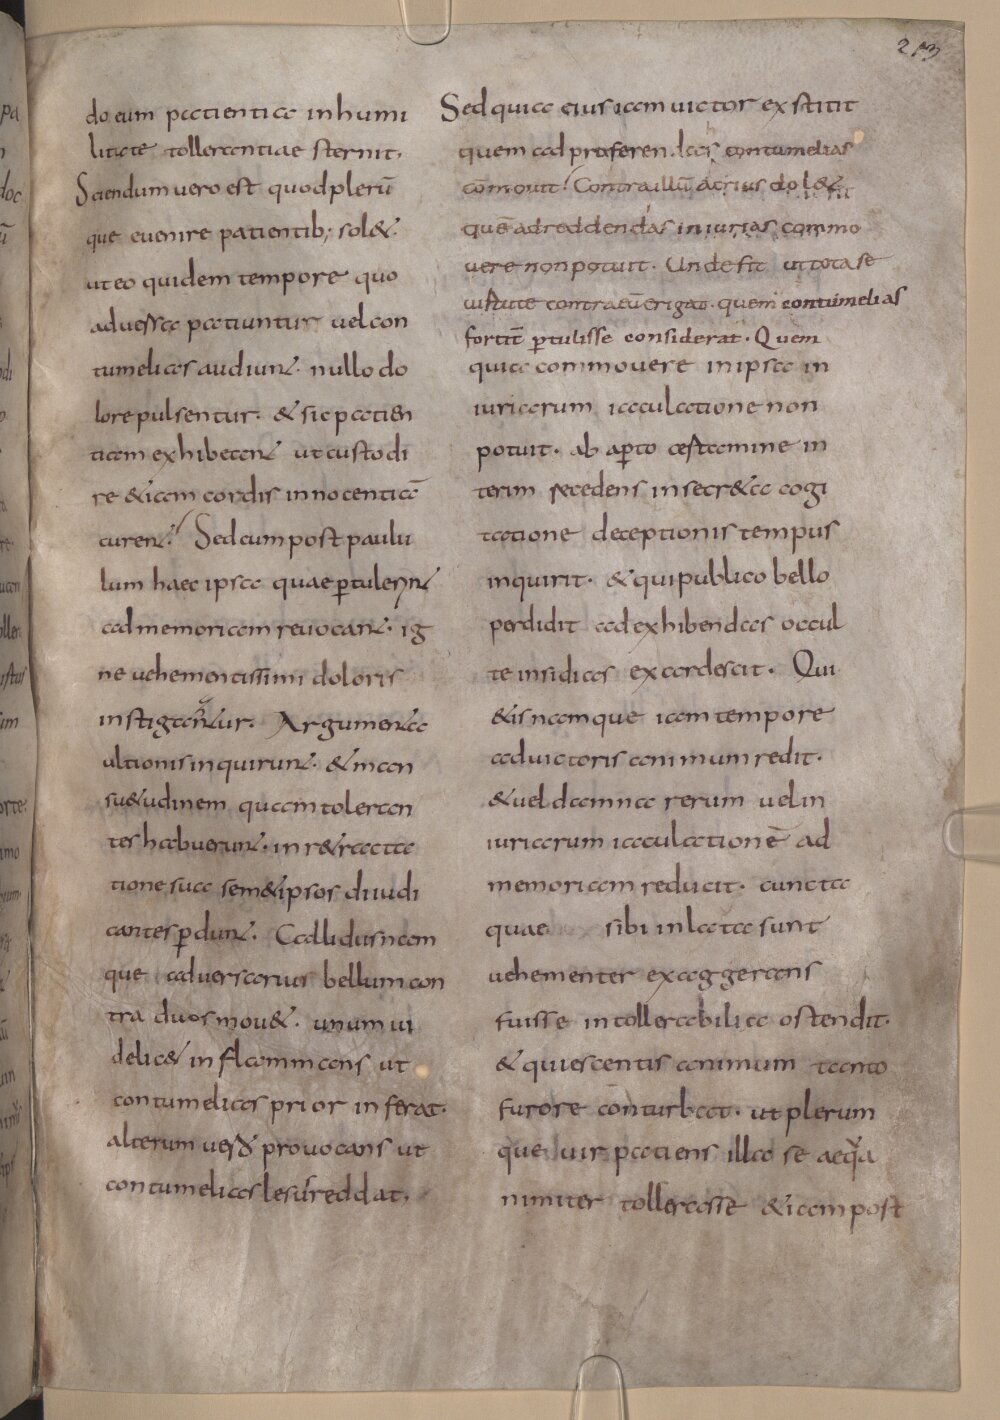 213
do eum patientia in humi
litate tollerantiae sternit.
Sciendum vero est quod plerū
que evenire patientib; sol&.
ut eo quidem tempore quo
adversa patiuntur vel con
tumelias audiunt. nullo do
lore pulsentur. & sic patien
tiam exhibeant ut custodi
re &iam cordis innocentiā
curent. Sed cum post paulu
lum haec ipsa quae ptulerunt
ad memoriam revocant. ig
ne vehementissimi doloris
instigantur. Argumenta
ultionis inquirunt. & man
su&udinem quam toleran
ter habuerunt. in r&racta
tione sua sem&ipsos diiudi
cantes pdunt. Callidus nam
que adversarius bellum con
tra duos mov&. unum vi
delic& inflammans ut
contumelias prior inferat.
alterum vero provocans ut
contumelias lesus reddat.
Sed quia eius iam victor exstitit
quem ad proferendas contumelias
cōmovit. Contra illū acrius dol&
quē ad reddendas iniurias commo
vere non potuit. Unde fit ut tota se
virtute contra eū erigat. quem contumelias
fortit ptulisse considerat. Quem
quia commovere in ipsa in
iuriarum iaculatione non
potuit. ab apto certamine in
terim recedens in secr&a cogi
tatione deceptionis tempus
inquirit. & qui publico bello
perdidit ad exhibendas occul
te insidias exardescit. Qui
&is namque iam tempore
ad victoris animum redit.
& vel damna rerum vel in
iuriarum iaculationē ad
memoriam reducit. cuncta
quae sibi inlata sunt
vehementer exaggerans
fuisse intollerabilia ostendit.
& quiescentis animum tanto
furore conturbat. ut plerum
que vir patiens illa se aequa
nimiter tollerasse &iam post